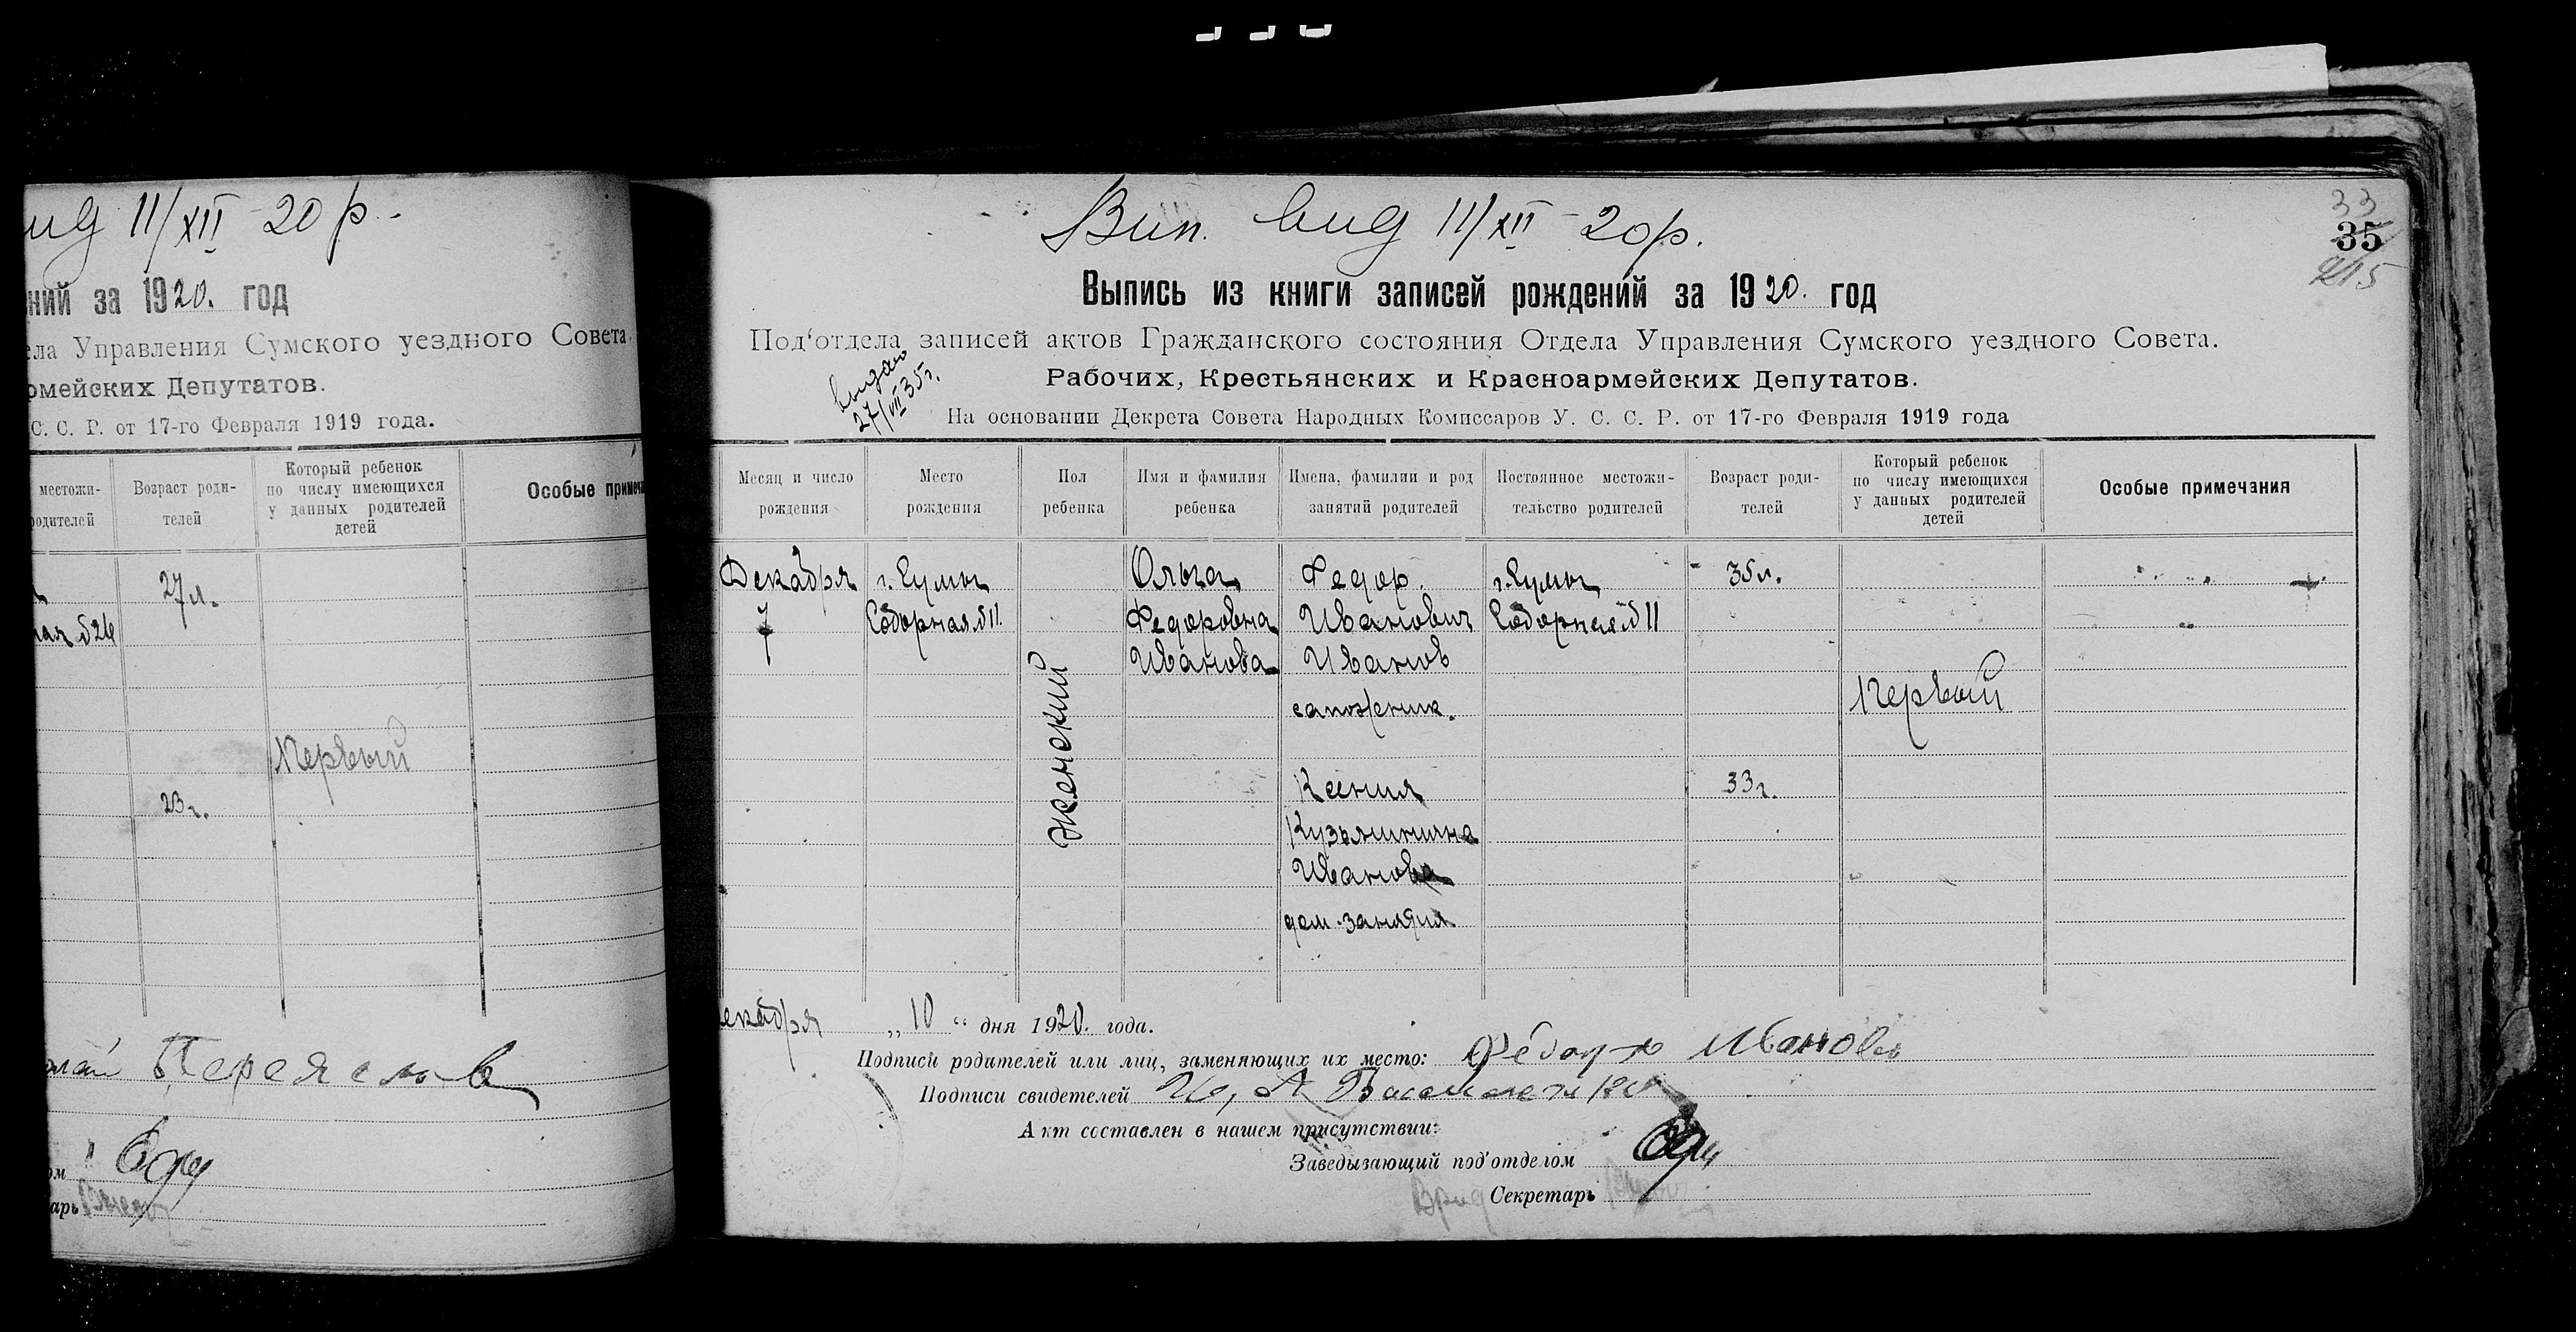 11/XII 20 р.
ний за 1920. год
ела Управления Сумского уездного Совета.
рмейских Депутатов.
С. С. Р. от 17-го Февраля 1919 года.
местожи-
родителей
Возраст роди-
телей
Который ребенок
по числу имеющихся
у данных родителей
детей
Особые примеча
27 л.
ная № 26
Первый
23 г.
Вип. вид 11/XII 20 р.
33
35
215
Выпись из книги записей рождений за 1920. год
Под'отдела записей актов Гражданского состояния Отдела Управления Сумского уездного Совета.
Рабочих, Крестьянских и Красноармейских Депутатов.
На основании Декрета Совета Народных Комиссаров У. С. С. Р. от 17-го Февраля 1919 года
выдано
27/VII 35 г.
Месяц и число
рождения
Место
рождения
Пол
ребенка
Имя и фамилия
ребенка
Имена, фамилии и род
занятий родителей
Постоянное местожи-
тельство родителей
Возраст роди-
телей
Который ребенок
по числу имеющихся
у данных родителей
детей
Особые примечания
Декабря
7
г. Сумы
Соборная № 11.
женский
Ольга
Федоровна
Иванова
Федор
Иванович
Иванов
сапожник.
Ксения
Кузьминична
Иванова
дом. занятия
г. Сумы
Соборная № 11
35 л.
33 г.
Первый
екабря „ 10 “ дня 1920. года.
Подписи родителей или лиц, заменяющих их место: Федор Иванов
Подписи свидетелей
Акт составлен в нашем присутствии:
Заведывающий под'отделом
Врид Секретарь